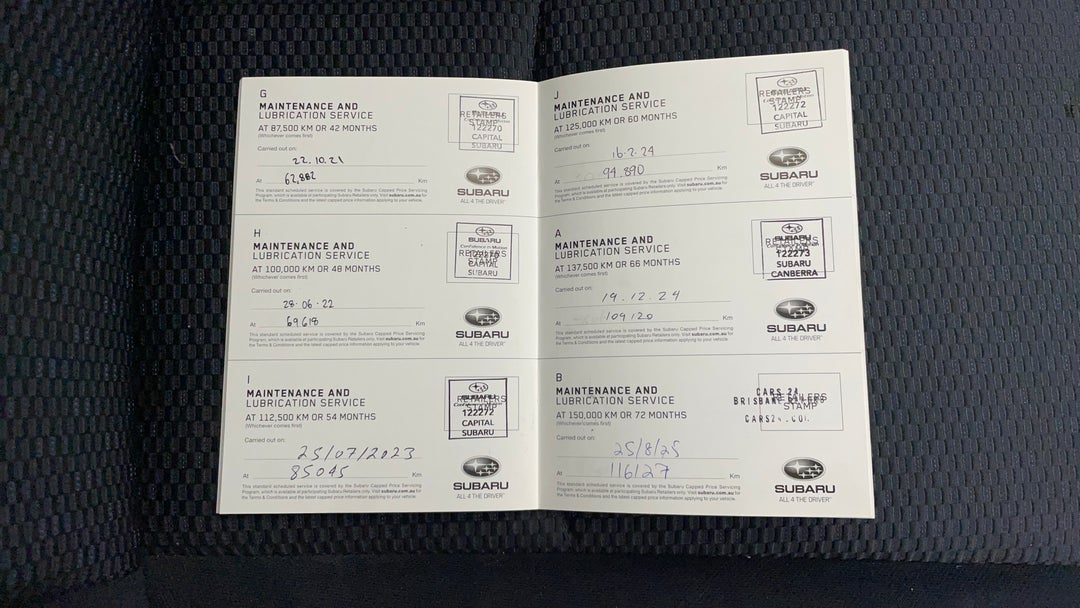 G
MAINTENANCE AND
LUBRICATION SERVICE
AT 87,500 KM OR 42 MONTHS
(Whichever comes first)
Carried out on:
22.10.21
At 62,882 Km
This standard scheduled service is covered by the Subaru Capped Price Servicing
Program, which is available at participating Subaru Retailers only. Visit subaru.com.au for
the Terms & Conditions and the latest capped price information applying to your vehicle.
RETAILERS
STAMP
122270
CAPITAL
SUBARU
SUBARU
ALL 4 THE DRIVER
H
MAINTENANCE AND
LUBRICATION SERVICE
AT 100,000 KM OR 48 MONTHS
(Whichever comes first)
Carried out on:
28.06.22
At 69,618 Km
This standard scheduled service is covered by the Subaru Capped Price Servicing
Program, which is available at participating Subaru Retailers only. Visit subaru.com.au for
the Terms & Conditions and the latest capped price information applying to your vehicle.
SUBARU
Confidence in Motion
RETAILERS
STAMP
CAPITAL
SUBARU
SUBARU
ALL 4 THE DRIVER
I
MAINTENANCE AND
LUBRICATION SERVICE
AT 112,500 KM OR 54 MONTHS
(Whichever comes first)
Carried out on:
25/07/2023
At 85045 Km
This standard scheduled service is covered by the Subaru Capped Price Servicing
Program, which is available at participating Subaru Retailers only. Visit subaru.com.au for
the Terms & Conditions and the latest capped price information applying to your vehicle.
SUBARU
RETAILERS
STAMP
122272
CAPITAL
SUBARU
SUBARU
ALL 4 THE DRIVER
J
MAINTENANCE AND
LUBRICATION SERVICE
AT 125,000 KM OR 60 MONTHS
(Whichever comes first)
Carried out on:
16.2.24
At 94,890 Km
This standard scheduled service is covered by the Subaru Capped Price Servicing
Program, which is available at participating Subaru Retailers only. Visit subaru.com.au for
the Terms & Conditions and the latest capped price information applying to your vehicle.
RETAILERS
STAMP
122272
CAPITAL
SUBARU
SUBARU
ALL 4 THE DRIVER
A
MAINTENANCE AND
LUBRICATION SERVICE
AT 137,500 KM OR 66 MONTHS
(Whichever comes first)
Carried out on:
19.12.24
At 109120 Km
This standard scheduled service is covered by the Subaru Capped Price Servicing
Program, which is available at participating Subaru Retailers only. Visit subaru.com.au for
the Terms & Conditions and the latest capped price information applying to your vehicle.
SUBARU
RETAILERS
STAMP
122273
SUBARU
CANBERRA
SUBARU
ALL 4 THE DRIVER
B
MAINTENANCE AND
LUBRICATION SERVICE
AT 150,000 KM OR 72 MONTHS
(Whichever comes first)
Carried out on:
25/8/25
At 116127 Km
This standard scheduled service is covered by the Subaru Capped Price Servicing
Program, which is available at participating Subaru Retailers only. Visit subaru.com.au for
the Terms & Conditions and the latest capped price information applying to your vehicle.
CARS 24
BRISBANE
RETAILERS
STAMP
SUBARU
ALL 4 THE DRIVER